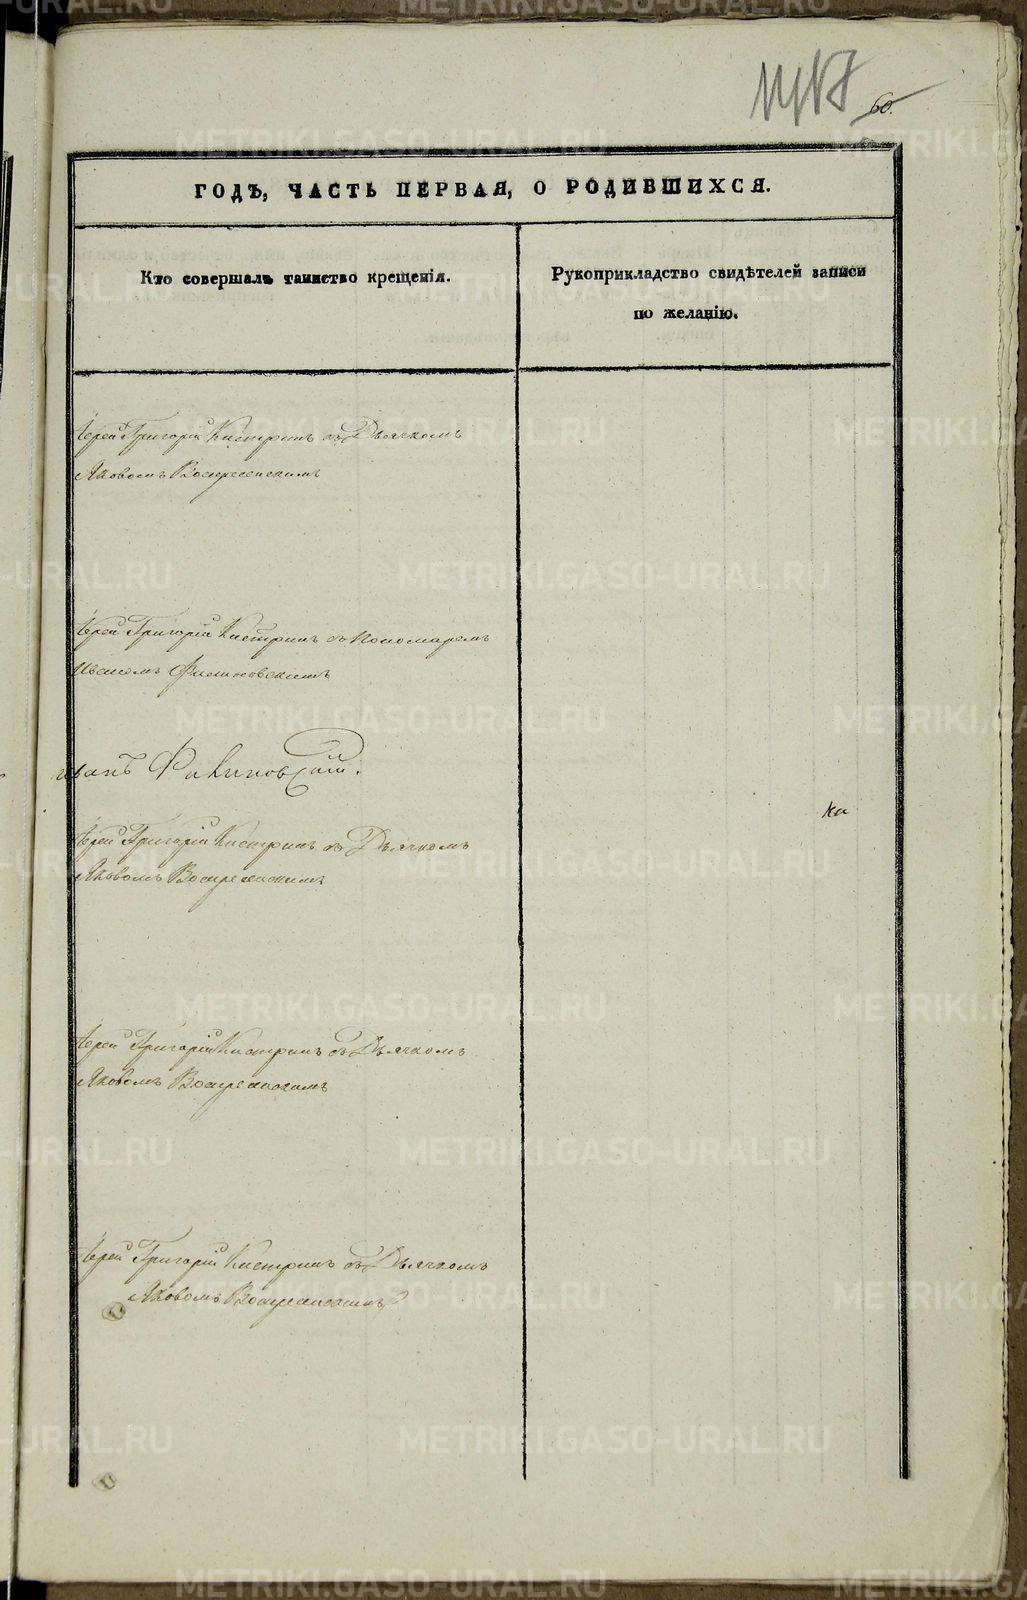 60.
ГОДЪ, ЧАСТЬ ПЕРВАЯ, О РОДИВШИХСЯ.
Кто совершалъ таинство крещенія.
Рукоприкладство свидѣтелей записи
по желанію.
Іерей Григорій Кистринъ съ Дьячкомъ
Яковомъ Воскресенскимъ
Іерей Григорій Кистринъ съ Пономаремъ
Иваномъ Филиновскимъ
иванъ Филиновскій.
ка
Іерей Григорій Кистринъ съ Дьячкомъ
Яковомъ Воскресенскимъ
Іерей Григорій Кистринъ съ Дьячкомъ
Яковомъ Воскресенскимъ
Іерей Григорій Кистринъ съ Дьячкомъ
Яковомъ Воскресенскимъ
METRIKI.GASO-URAL.RU